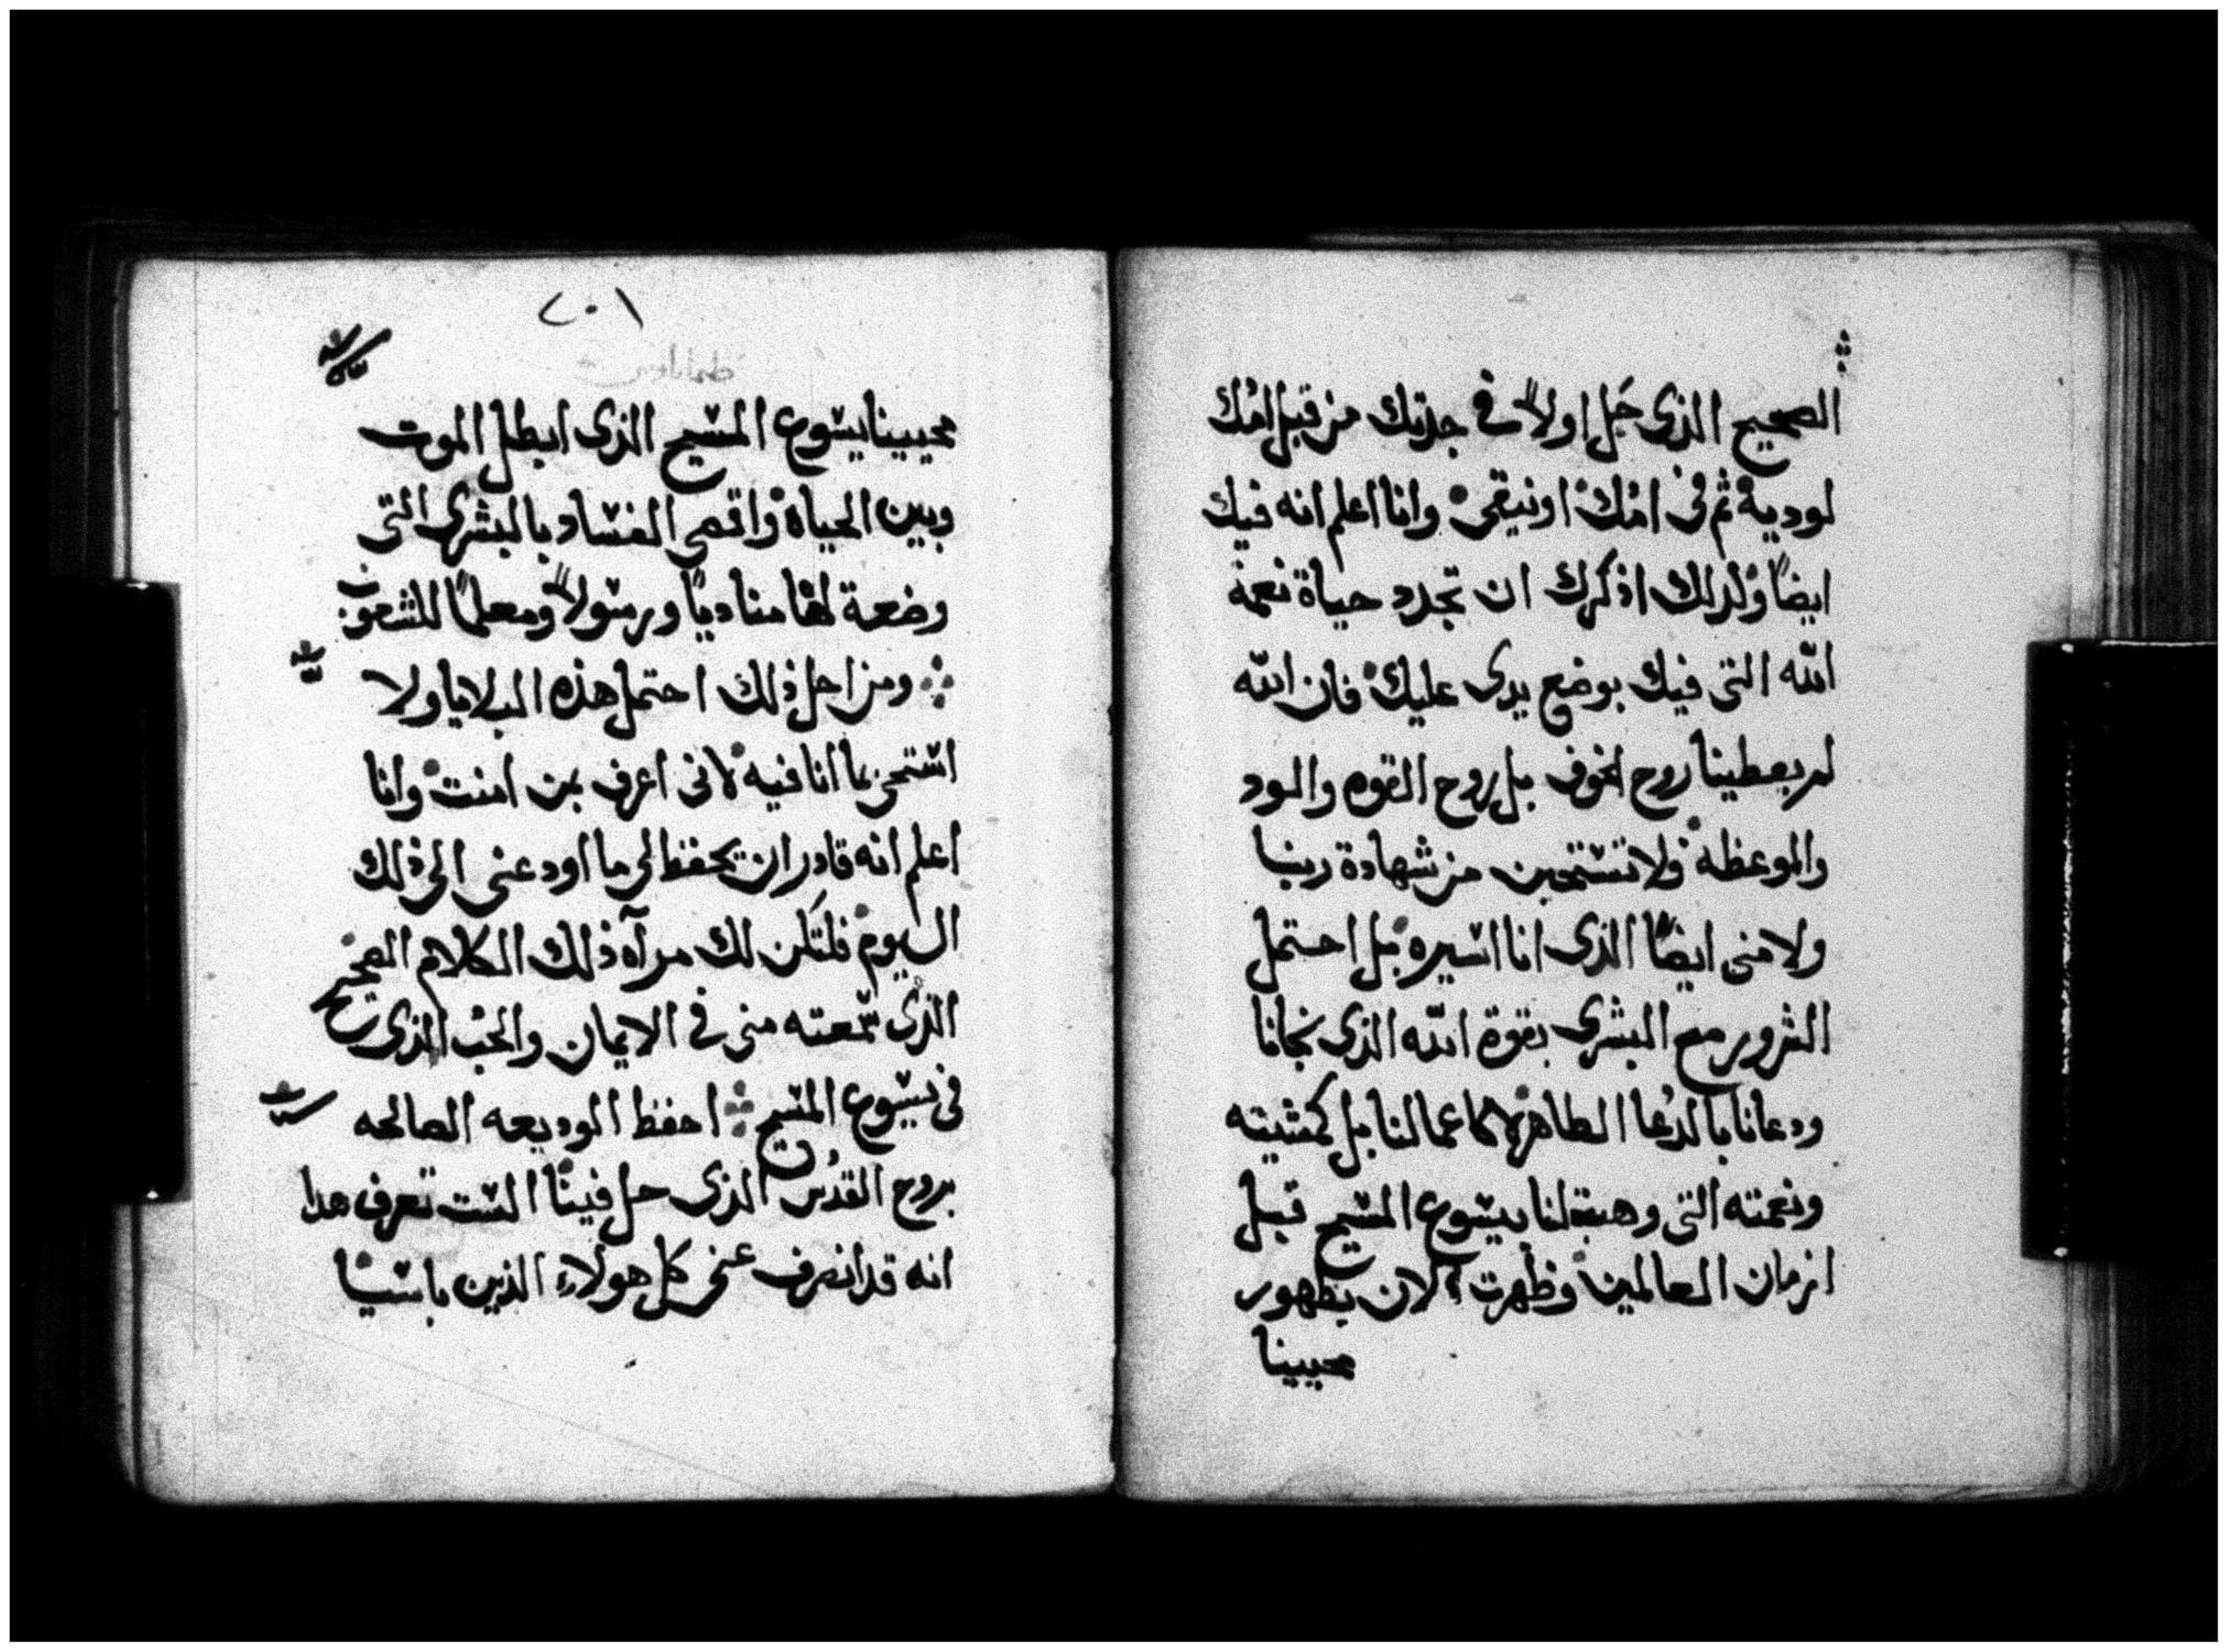 الصحيح الذى حَل اولاً فى جدتك من قبل امُك
لوديه ثم فى امُك اونيقى وانا اعلم انه فيك
ايضاً ولذلك اذكرك ان تجدد حياة نعمة
الله التى فيك بوضع يدى عليك فان الله
لم يعطينا روح الخوف بل روح القوه والود
والموعظه ولا تستحين من شهادة ربنا
ولا منى ايضًا الذى انا اسيره بل احتمل
الشرور مع البشرى بقوة الله الذى نجانا
ودعانا بالدُعا الطاهر لا كاعمالنا بل كمشيته
ونعمته التى وهبت لنا بيسوع المسيح قبل
ازمان العالمين وظهرت الان بظهور
محيينا
٢٠١
محيينا يسوع المسيح الذى ابطل الموت
وبين الحياة واقصى الفساد بالبشرى التى
وضعة لها مناديًا ورسولاً ومعلمًا للشعوب
ومن اجل ذلك احتمل هذه البلايا ولا
استحى بما انا فيه لانى اعرف بمن امنت وانا
اعلم انه قادر ان يحفظ لى ما اودعنى الى ذلك
اليوم فلتَكن لك مرآه ذلك الكلام الصحيح
الذى سمعته منى فى الايمان والحب الذى
فى يسوع المسيح احفظ الوديعه الصالحه
بروح القدُس الذى حل فينا الست تعرف هدا
انه قد انصرف عنى كل هولاء الذين باسيا